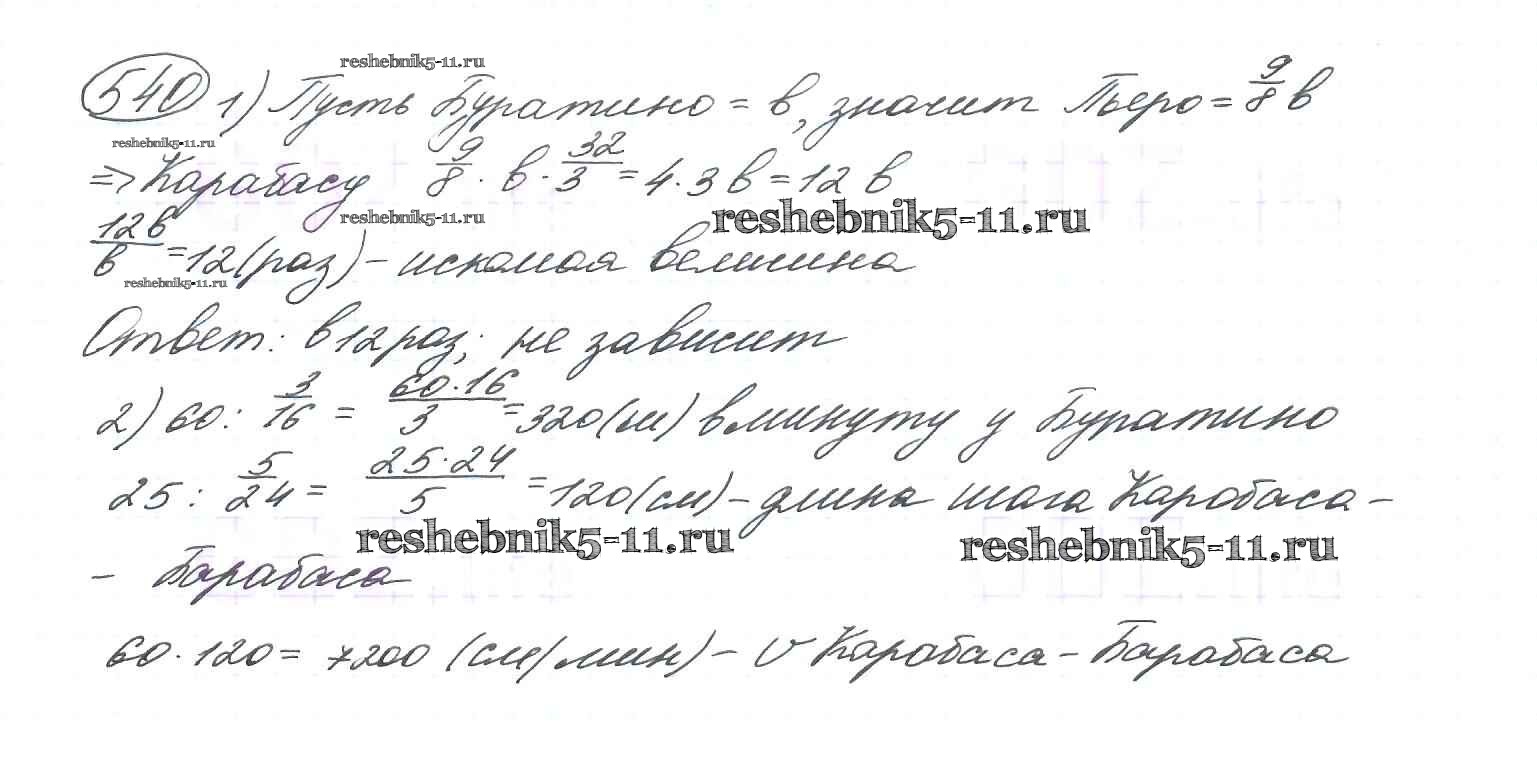 reshebnik5-11.ru
540 1) Пусть Буратино = в, значит Пьеро = 9/8 в
reshebnik5-11.ru
=> Карабасу 9/8 · в · 32/3 = 4·3в = 12в
reshebnik5-11.ru reshebnik5-11.ru
12в/в = 12 (раз) – искомая величина
reshebnik5-11.ru
Ответ: в 12 раз; не зависит
2) 60 : 3/16 = 60·16/3 = 320 (см) в минуту у Буратино
25 : 5/24 = 25·24/5 = 120 (см) – длина шага Карабаса –
reshebnik5-11.ru reshebnik5-11.ru
– Барабаса
60·120 = 7200 (см/мин) – v Карабаса – Барабаса